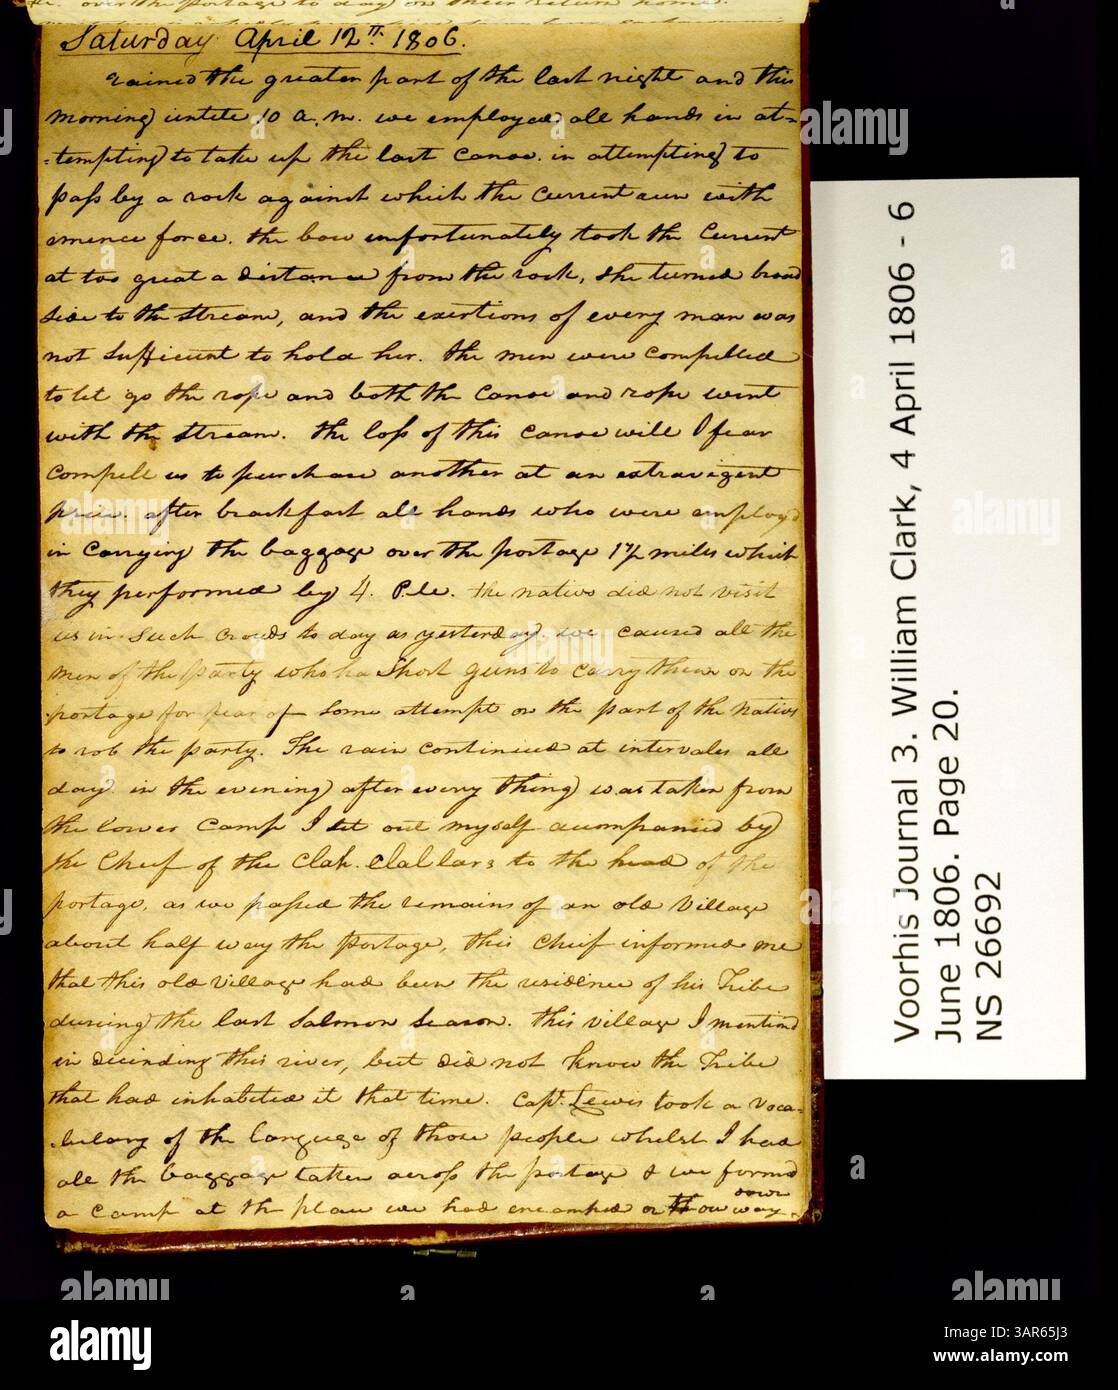 over the portage to day on their return home.
Saturday April 12th 1806.
rained the greater part of the last night and this
morning untile 10 a.m. we employed all hands in at=
=tempting to take up the last canoe. in attempting to
pass by a rock against which the current run with
emence force. the bow unfortunately took the Current
at too great a distance from the rock, she turned broad
side to the stream, and the exertions of every man was
not sufficient to hold her. the men were compelled
to let go the rope and both the Canoe and rope went
with the stream. the loss of this canoe will I fear
compell us to purchase another at an extravigent
price. after brackfast all hands who were employd
in Carrying the baggage over the portage 1 1/2 miles which
they performed by 4. P.M. the natives did not visit
us in such crouds to day as yesterday. we caused all the
men of the party who ha Short guns to carry them on the
portage for fear of Some attempt on the part of the natives
to rob the party. The rain continued at intervales all
day. in the evening after every thing was taken from
the lower Camp I set out myself accompanied by
the Cheif of the Clah-clal lars to the head of the
portage. as we passed the remains of an old Village
about half way the portage, this Cheif informed me
that this old Village had been the residence of his Tribe
dureing the last Salmon Season. this village I mentiond
in decending this river, but did not know the Tribe
that had inhabited it that time. Capt. Lewis took a voca-
-bulary of the languge of those people whilst I had
all the baggage taken across the portage & we formed
a Camp at the place we had encamped on our way down
Voorhis Journal 3. William Clark, 4 April 1806 - 6
June 1806. Page 20.
NS 26692
alamy
alamy
Image ID: 3AR65J3
www.alamy.com